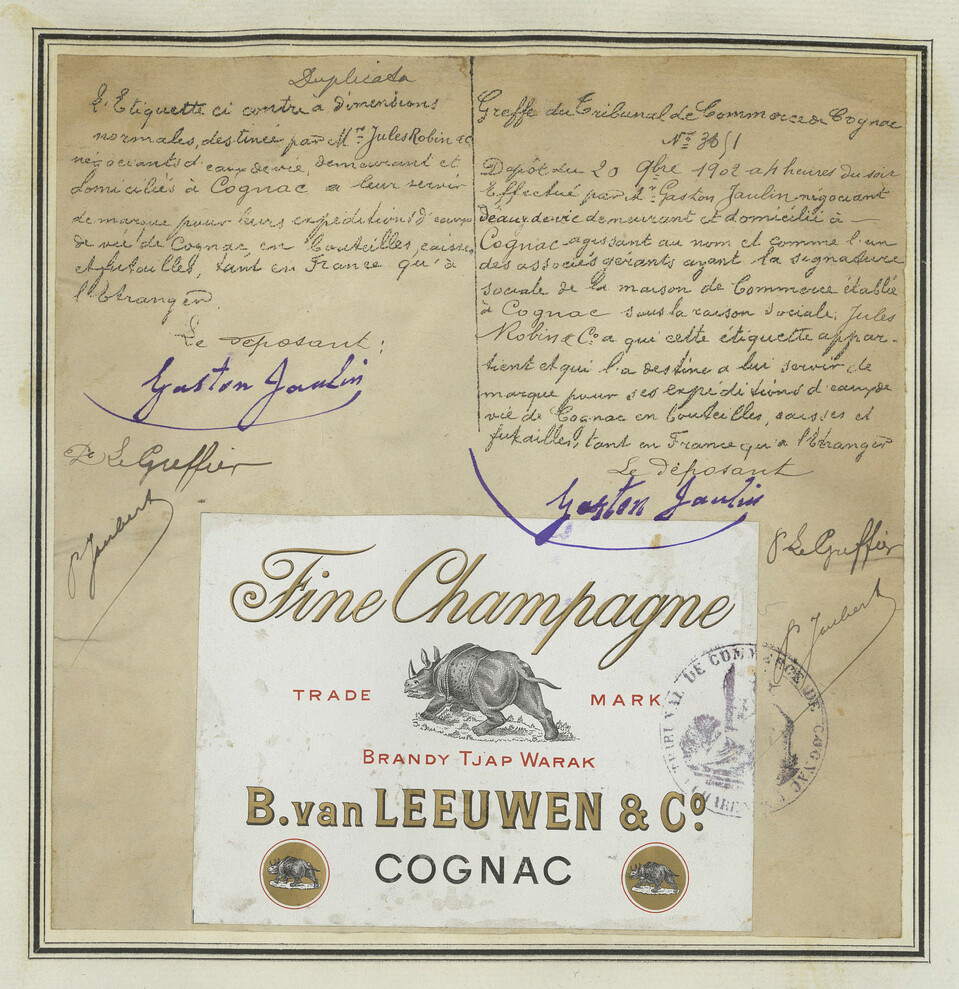 Duplicata
L'Etiquette ci contre à dimensions
normales, destinée par M.rs Jules Robin & C
négociants d'eaux de vie, demeurant et
domiciliés à Cognac a leur servir
de marque pour leurs expéditions d'eaux
de vie de Cognac en bouteilles, caisses
et futailles, tant en France qu'à
l'Etranger
Le déposant :
Gaston Jaulin
Le Greffier
P Joubert
Greffe du Tribunal de Commerce de Cognac
N° 3651
Dépôt du 20 9bre 1902 a 4 heures du soir
Effectué par M.r Gaston Jaulin négociant
d'eaux de vie demeurant et domicilié à
Cognac agissant au nom et comme l'un
des associés gérants ayant la signature
sociale de la maison de Commerce établie
à Cognac sous la raison sociale, Jules
Robin & Co a qui cette étiquette appar-
tient et qui l'a destine a lui servir de
marque pour ses expéditions d'eaux de
vie de Cognac en bouteilles, caisses et
futailles, tant en France qu'a l'Etranger
Le déposant
Gaston Jaulin
P Le Greffier
P Joubert
Fine Champagne
TRADE MARK
BRANDY TJAP WARAK
B. van LEEUWEN & Co.
COGNAC
TRIBUNAL DE COMMERCE DE COGNAC